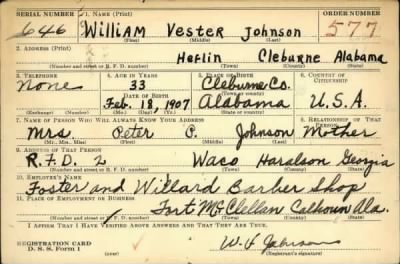 SERIAL NUMBER 1. NAME (Print) ORDER NUMBER
646 William Vester Johnson 577
(First) (Middle) (Last)
2. ADDRESS (Print)
Heflin Cleburne Alabama
(Number and street or R. F. D. number) (Town) (County) (State)
3. TELEPHONE 4. AGE IN YEARS 5. PLACE OF BIRTH 6. COUNTRY OF CITIZENSHIP
None 33 Cleburne Co.
DATE OF BIRTH (Town or county)
Feb. 18, 1907 Alabama U.S.A.
(Exchange) (Number) (Mo.) (Day) (Yr.) (State or country)
7. NAME OF PERSON WHO WILL ALWAYS KNOW YOUR ADDRESS 8. RELATIONSHIP OF THAT PERSON
Mrs. Peter P. Johnson Mother
(Mr., Mrs., Miss) (First) (Middle) (Last)
9. ADDRESS OF THAT PERSON
R.F.D. 2 Waco Haralson Georgia
(Number and street or R. F. D. number) (Town) (County) (State)
10. EMPLOYER'S NAME
Foster and Willard Barber Shop
11. PLACE OF EMPLOYMENT OR BUSINESS
Fort McClellan Calhoun Ala.
(Number and street or R. F. D. number) (Town) (County) (State)
I AFFIRM THAT I HAVE VERIFIED ABOVE ANSWERS AND THAT THEY ARE TRUE.
REGISTRATION CARD
D. S. S. Form 1 Johnson